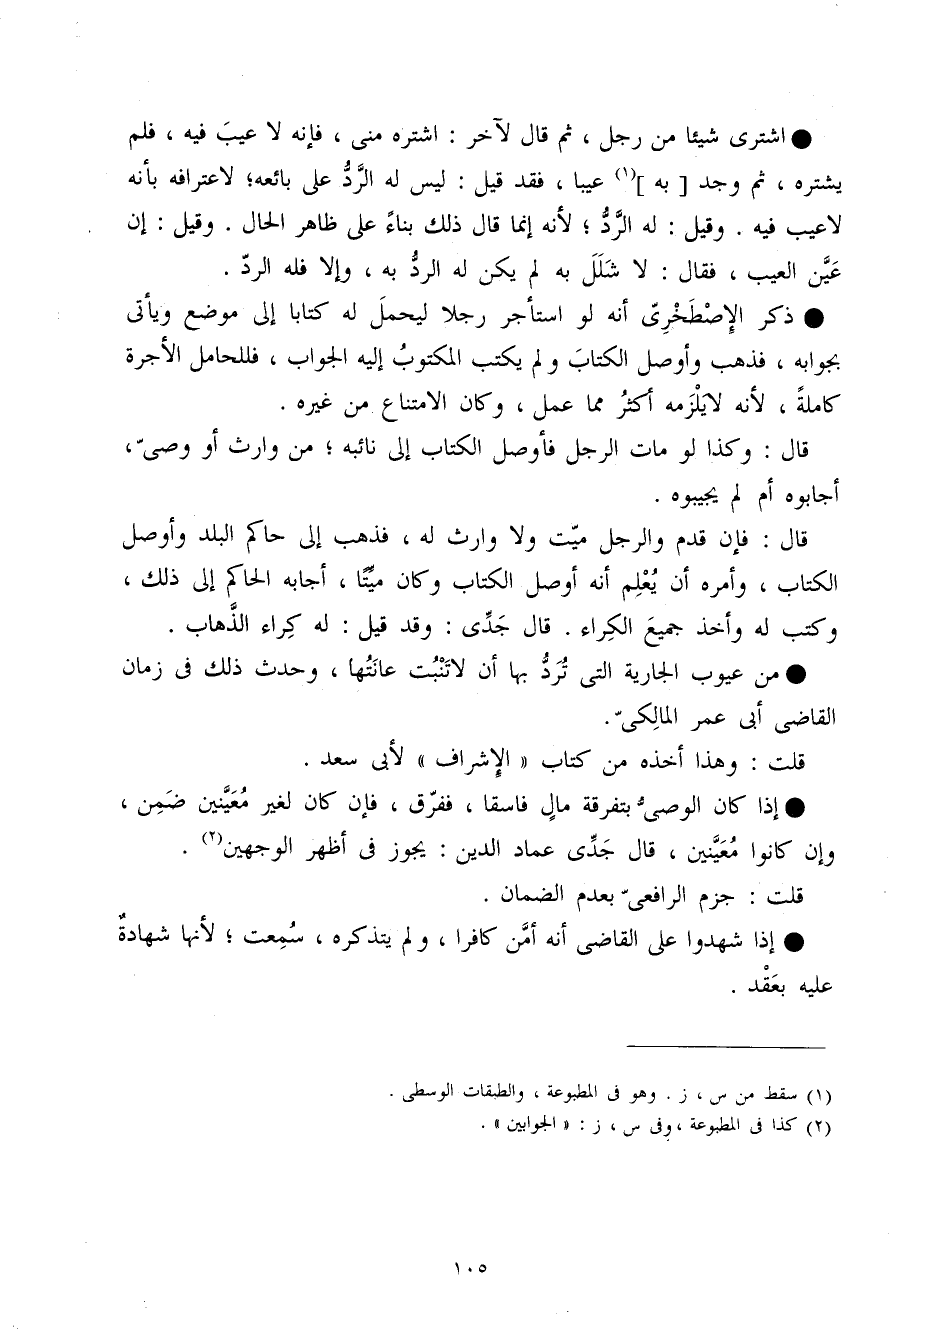 ● اشترى شيئا من رجل ، ثم قال لآخر : اشتره منى ، فإنه لا عيبَ فيه ، فلم
يشتره ، ثم وجد [ به ](١) عيبا ، فقد قيل : ليس له الرَّدُّ على بائعه؛ لاعترافه بأنه
لاعيب فيه . وقيل : له الرَّدُّ ؛ لأنه إنما قال ذلك بناءً على ظاهر الحال . وقيل : إن
عَيَّن العيب ، فقال : لا شَلَلَ به لم يكن له الردُّ به ، وإلا فله الردّ .
● ذكر الإِصْطَخْرِىّ أنه لو استأجر رجلا ليحملَ له كتابا إلى موضع ويأتى
بجوابه ، فذهب وأوصل الكتابَ ولم يكتب المكتوبُ إليه الجواب ، فللحامل الأجرة
كاملةً ، لأنه لايَلْزَمه أكثرُ مما عمل ، وكان الامتناع من غيره .
قال : وكذا لو مات الرجل فأوصل الكتاب إلى نائبه ؛ من وارث أو وصىّ ،
أجابوه أم لم يجيبوه .
قال : فإن قدم والرجل ميّت ولا وارث له ، فذهب إلى حاكم البلد وأوصل
الكتاب ، وأمره أن يُعْلِم أنه أوصل الكتاب وكان ميِّتًا ، أجابه الحاكم إلى ذلك ،
وكتب له وأخذ جميعَ الكِراء . قال جَدِّى : وقد قيل : له كِراء الذَّهاب .
● من عيوب الجارية التى تُرَدُّ بها أن لاتَنْبُت عانَتُها ، وحدث ذلك فى زمان
القاضى أبى عمر المالِكىّ .
قلت : وهذا أخذه من كتاب « الإِشراف » لأبى سعد .
● إذا كان الوصىُّ بتفرقة مالٍ فاسقا ، ففرّق ، فإن كان لغير مُعَيَّنين ضَمِن ،
وإن كانوا مُعَيَّنين ، قال جَدِّى عماد الدين : يجوز فى أظهر الوجهين(٢) .
قلت : جزم الرافعىّ بعدم الضمان .
● إذا شهدوا على القاضى أنه أمَّن كافرا ، ولم يتذكره ، سُمِعت ؛ لأنها شهادةٌ
عليه بعَقْد .
(١) سقط من س ، ز . وهو فى المطبوعة ، والطبقات الوسطى .
(٢) كذا فى المطبوعة ، وفى س ، ز : « الجوابين » .
١٠٥